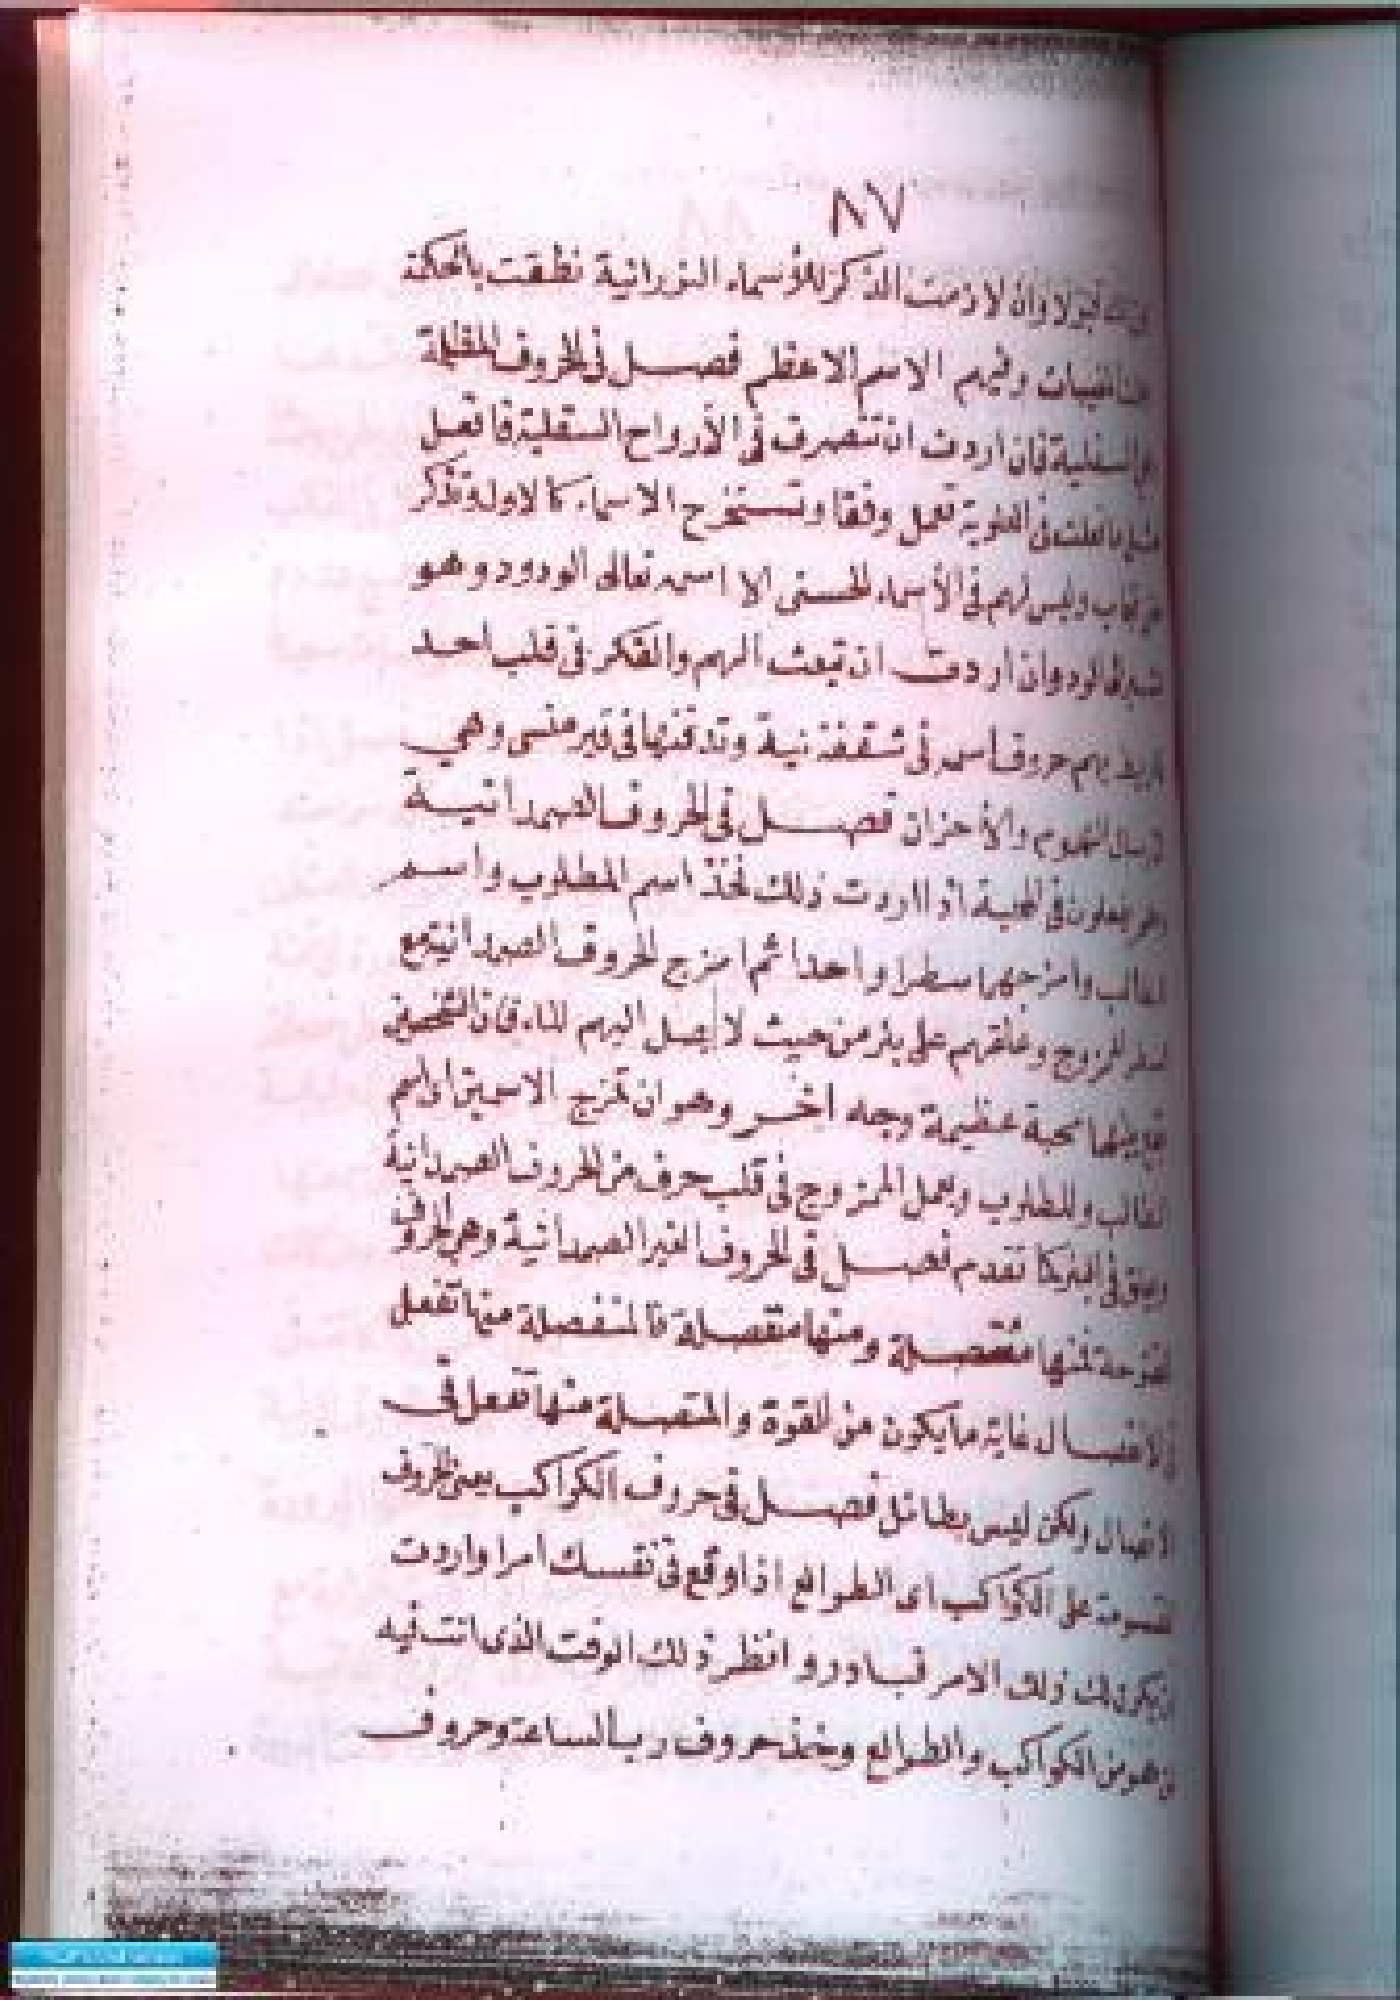 ٨٧
قبولا وان لازمت الذكر للأسماء النورانية نطقت بالحكمة
وفهم الاسم الاعظم فصل في الحروف المظلمة
السفلية فان اردت ان تتصرف في الأرواح السفلية فافعل
في العلوية تعمل وفقا وتستخرج الاسماء كالاول وتذكر
وليس لهم في الأسماء الحسنى الا اسمه تعالى الودود وهو
وان اردت ان تبعث الهم والفكر في قلب احد
حروف اسمه في شقفة نية وتدفنها في قبر منسى وهي
الهموم والأحزان فصل في الحروف الصمدانية
يفعلون في المحبة اذا اردت ذلك فخذ اسم المطلوب واسم
وامزجهما سطرا واحدا ثم امزج الحروف الصمدانية مع
الممزوج وعلقهم على بئر من حيث لا يصل اليهم الماء فان الشخصين
محبة عظيمة وجه اخر وهو ان تمزج الاسمين اى اسم
الطالب والمطلوب ويعمل الممزوج في قلب حرف من الحروف الصمدانية
كما تقدم فصل في الحروف الغير الصمدانية وهي الحروف
فمنها منفصلة ومنها متصلة فالمنفصلة منها تفعل
غاية ما يكون من القوة والمتصلة منها تفعل في
ولكن ليس بطائل فصل في حروف الكواكب يعنى الحروف
على الكواكب اى الطوالع اذا وقع في نفسك امرا واردت
ذلك الامر فبادر وانظر ذلك الوقت الذى انت فيه
من الكواكب والطوالع وخذ حروف رب الساعة وحروف